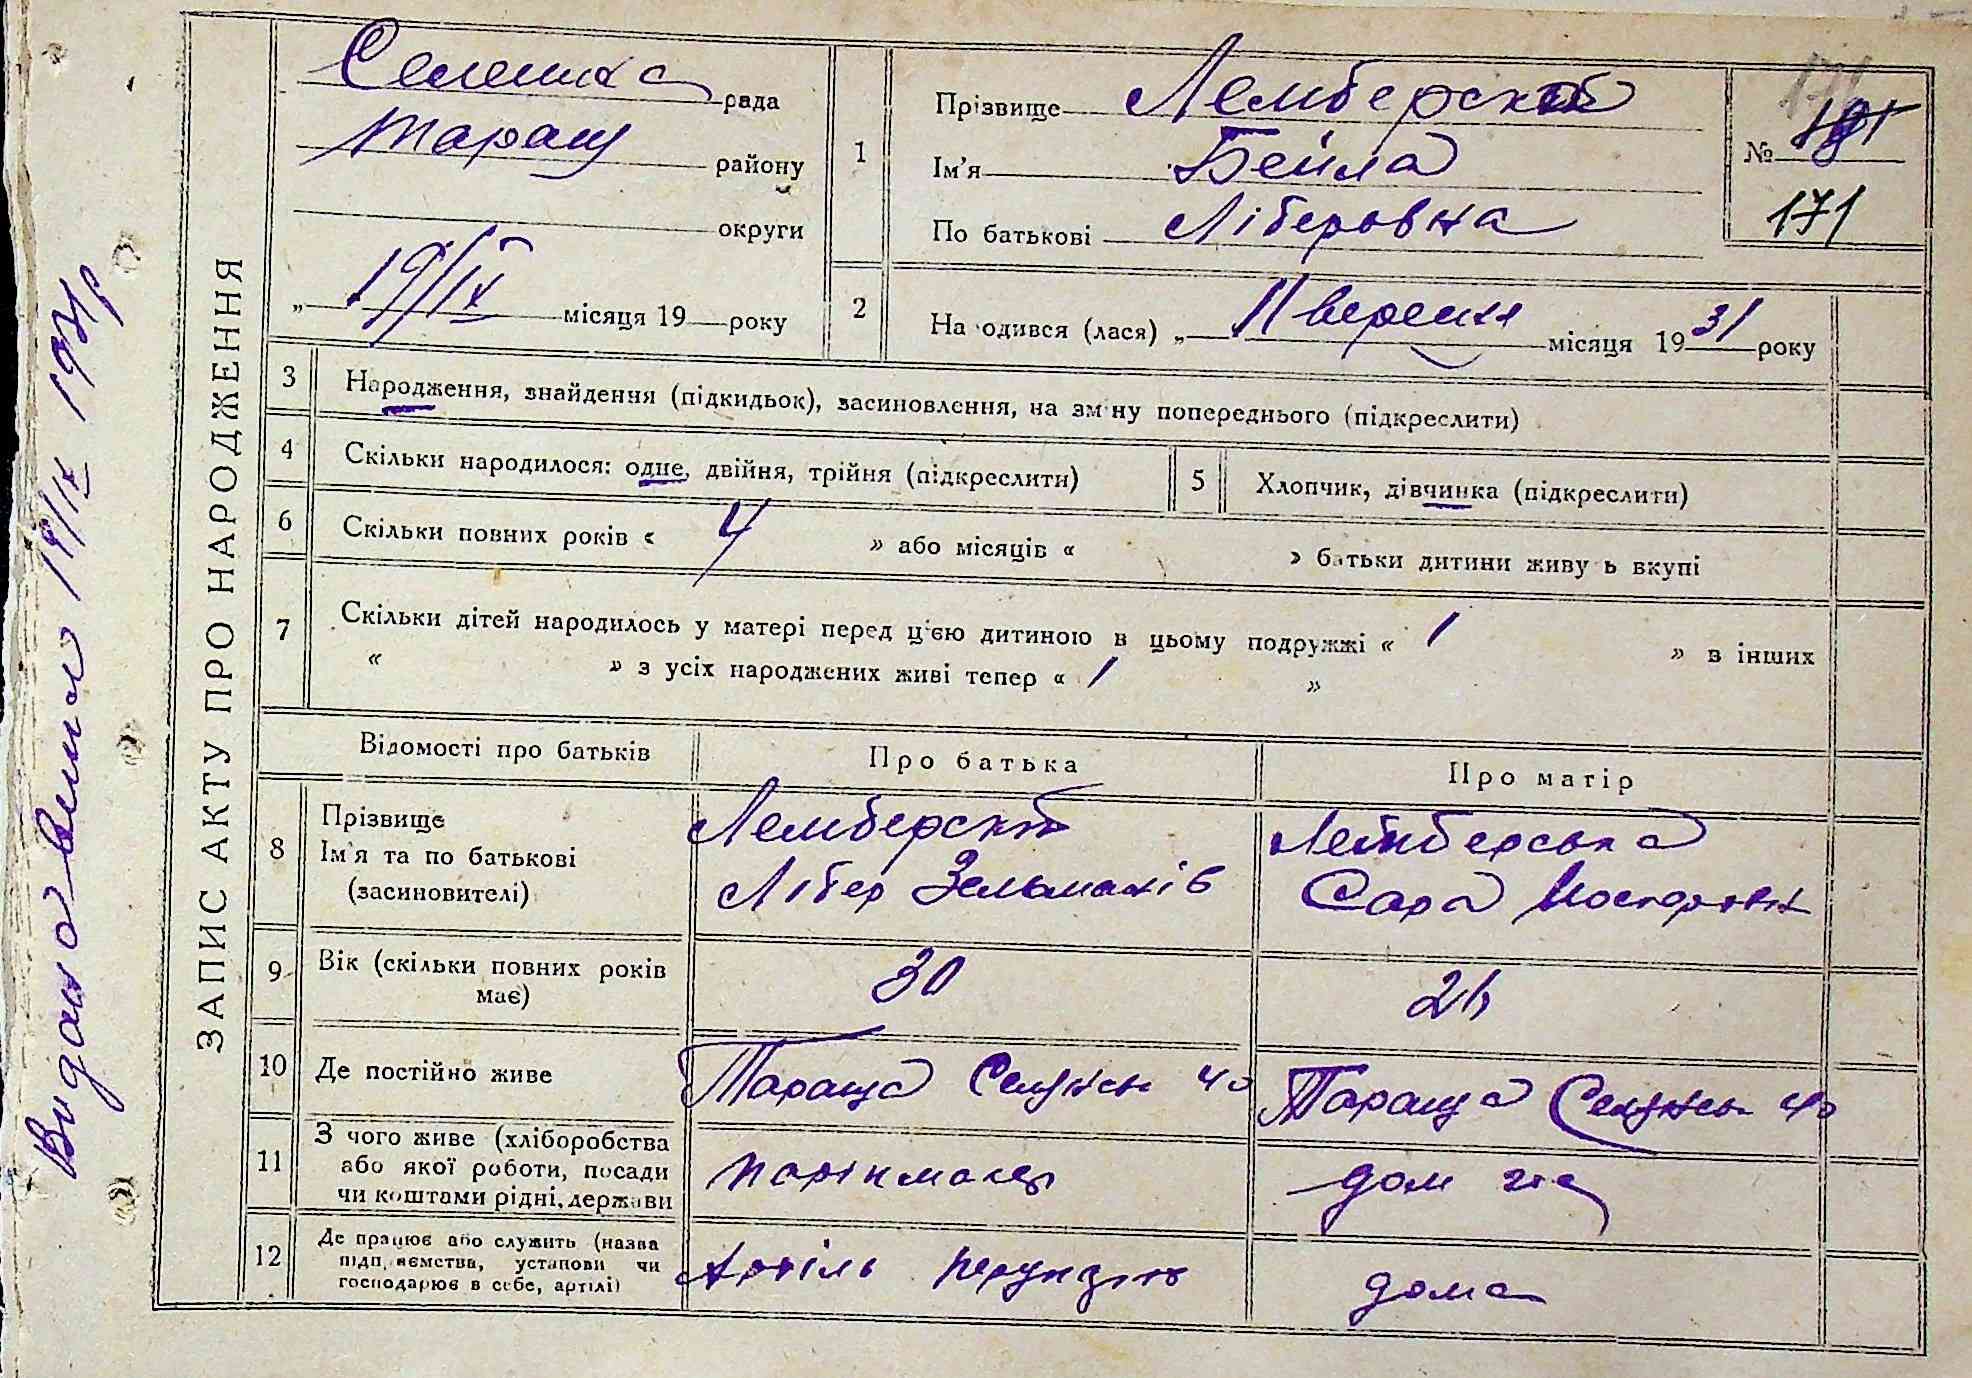 ЗАПИС АКТУ ПРО НАРОДЖЕННЯ
Видано
рада
Таращ району
округи
„ 19/IX місяця 19 року
1
Прізвище Лемберск
Ім'я Бейла
По батькові Ліберовна
№ 171
2
На одився (лася) „ 11 вересня місяця 19 31 року
3 Народження, знайдення (підкидьок), засиновлення, на зм ну попереднього (підкреслити)
4 Скільки народилося: одне, двійня, трійня (підкреслити)
5 Хлопчик, дівчинка (підкреслити)
6 Скільки повних років « 4 » або місяців « » батьки дитини живу ь вкупі
7 Скільки дітей народилось у матері перед цією дитиною в цьому подружжі « 1 » в інших
« » з усіх народжених живі тепер « 1 »
Відомості про батьків Про батька Про матір
8 Прізвище
Ім'я та по батькові
(засиновителі)
Лемберскі
Лібер Зельманів
Лемберська
Сара
9 Вік (скільки повних років
має)
30
10 Де постійно живе
Тараща 40
Тараща 40
11 З чого живе (хліборобства
або якої роботи, посади
чи коштами рідні, держави
дом
12 Де працює або служить (назва
підп. ємства, установи чи
господарює в себе, артілі)
Артіль
дома